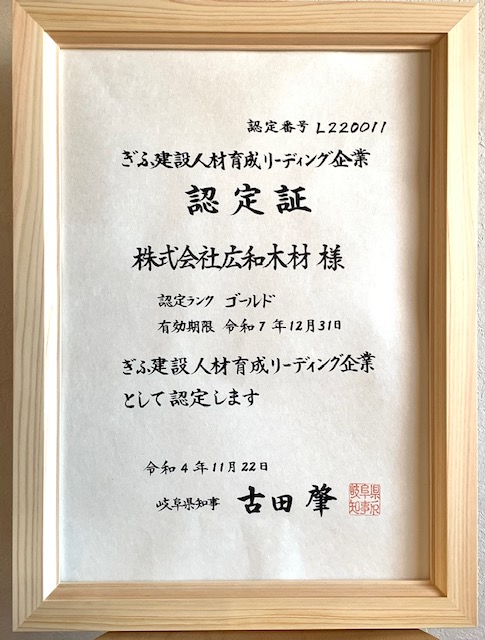 認定番号 L220011
ぎふ建設人材育成リーディング企業
認定証
株式会社広和木材 様
認定ランク ゴールド
有効期限 令和7年12月31日
ぎふ建設人材育成リーディング企業
として認定します
令和4年11月22日
岐阜県知事 古田 肇
岐阜県知事之印